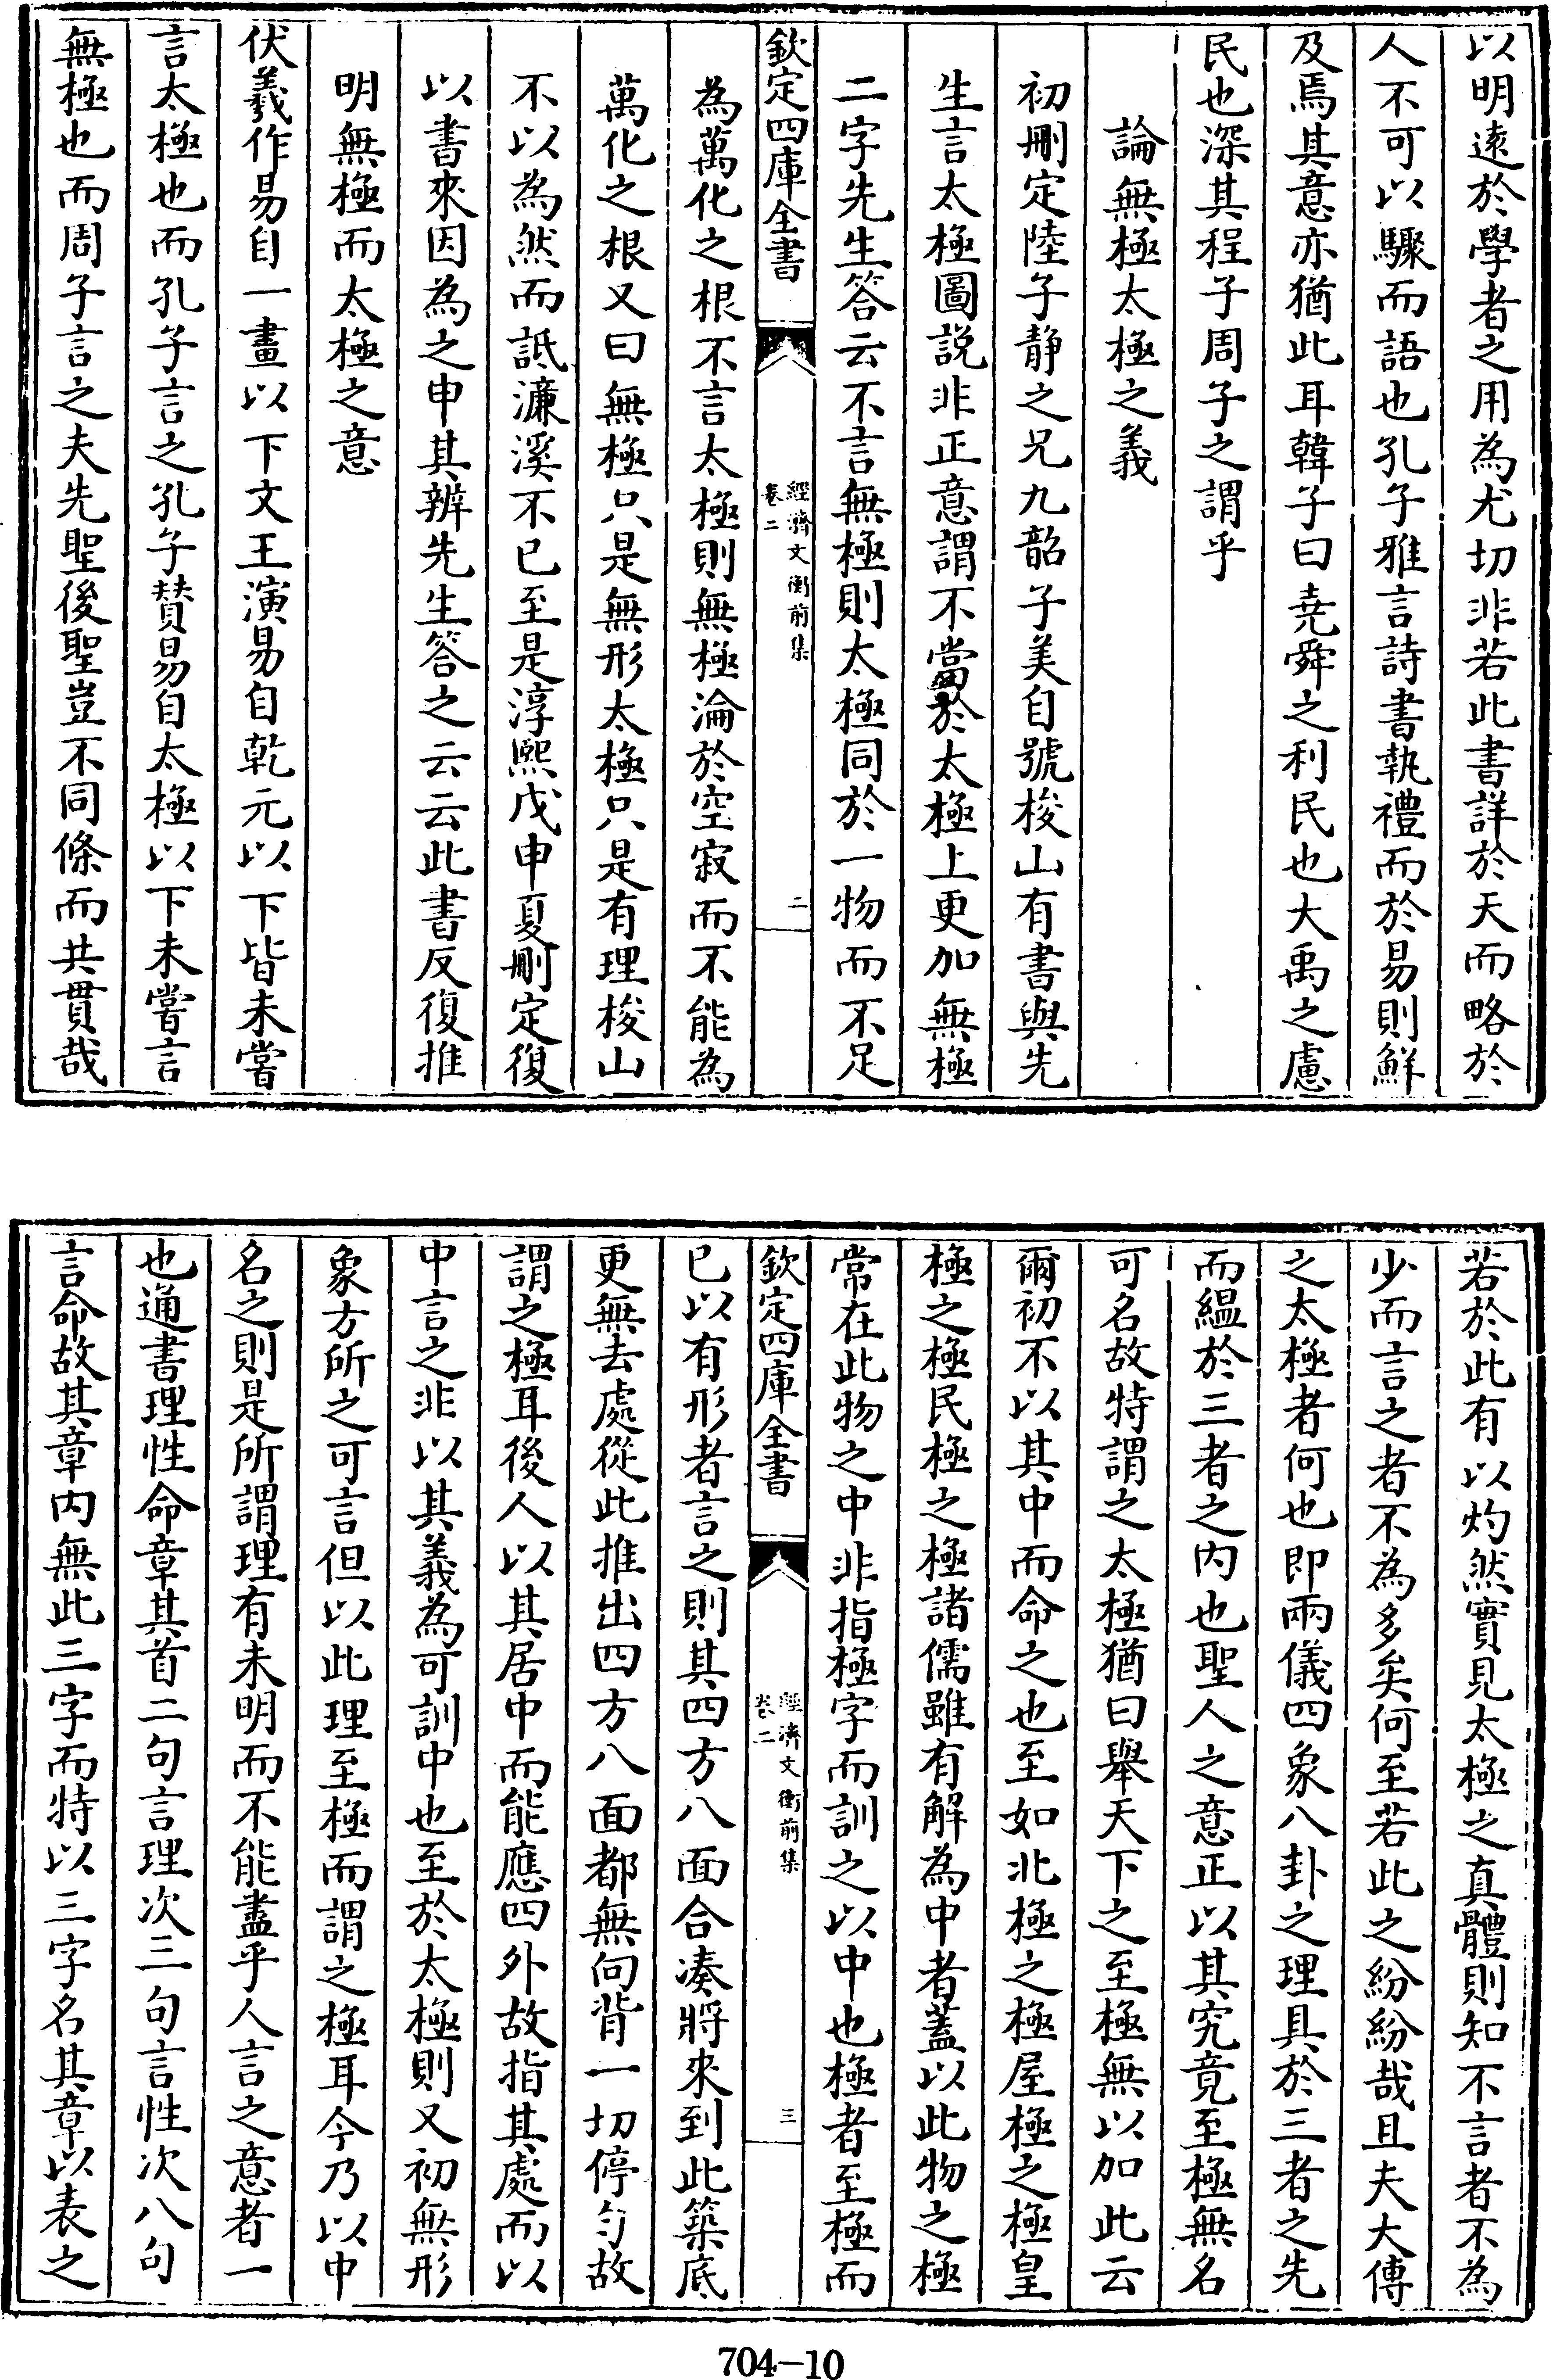 以明逺於學者之用為尤切非若此書詳於天而略於
人不可以驟而語也孔子雅言詩書執禮而於易則鮮
及焉其意亦猶此耳韓子曰堯舜之利民也大禹之慮
民也深其程子周子之謂乎
論無極太極之義
初刪定陸子靜之兄九韶子美自號梭山有書與先
生言太極圖説非正意謂不當於太極上更加無極
二字先生答云不言無極則太極同於一物而不足
欽定四庫全書
經濟文衡前集
卷二
二
為萬化之根不言太極則無極淪於空寂而不能為
萬化之根又曰無極只是無形太極只是有理梭山
不以為然而詆濂溪不已至是淳熙戊申夏刪定復
以書來因為之申其辨先生答之云云此書反復推
明無極而太極之意
伏羲作易自一畫以下文王演易自乾元以下皆未嘗
言太極也而孔子言之孔子賛易自太極以下未嘗言
無極也而周子言之夫先聖後聖豈不同條而共貫哉
若於此有以灼然實見太極之真體則知不言者不為
少而言之者不為多矣何至若此之紛紛哉且夫大傳
之太極者何也即兩儀四象八卦之理具於三者之先
而緼於三者之内也聖人之意正以其究竟至極無名
可名故特謂之太極猶曰舉天下之至極無以加此云
爾初不以其中而命之也至如北極之極屋極之極皇
極之極民極之極諸儒雖有解為中者蓋以此物之極
常在此物之中非指極字而訓之以中也極者至極而
欽定四庫全書
經濟文衡前集
卷二
三
已以有形者言之則其四方八面合湊將來到此築底
更無去處從此推出四方八面都無向背一切停勻故
謂之極耳後人以其居中而能應四外故指其處而以
中言之非以其義為可訓中也至於太極則又初無形
象方所之可言但以此理至極而謂之極耳今乃以中
名之則是所謂理有未明而不能盡乎人言之意者一
也通書理性命章其首二句言理次三句言性次八句
言命故其章内無此三字而特以三字名其章以表之
704—10